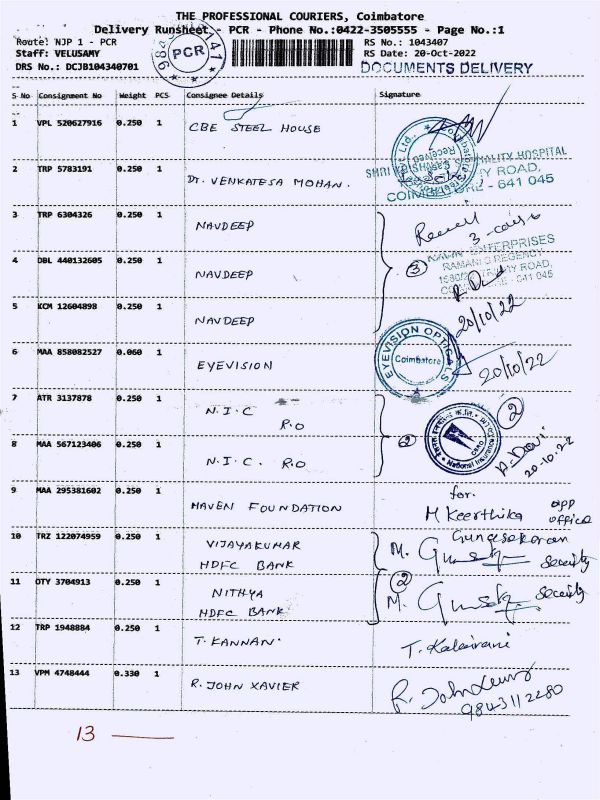 THE PROFESSIONAL COURIERS, Coimbatore
Delivery Runsheet - PCR - Phone No.:0422-3505555 - Page No.:1
Route: NJP 1 - PCR RS No.: 1043407
Staff: VELUSAMY RS Date: 20-Oct-2022
DRS No.: DCJB104340701 DOCUMENTS DELIVERY
PCR
S No Consignment No Weight PCS Consignee Details Signature
1 VPL 520627916 0.250 1 CBE STEEL HOUSE
SHRI HOSPITAL
2 TRP 5783191 0.250 1 DT. VENKATESA MOHAN. ROAD,
COIMBATORE - 641 045
3 TRP 6304326 0.250 1 NAVDEEP
ENTERPRISES
RAMANI'S REGENCY
4 DBL 440132605 0.250 1 NAVDEEP 3
ROAD,
641 045
5 KCM 12604898 0.250 1 NAVDEEP 20/10/22
6 MAA 858082527 0.060 1 EYEVISION EYEVISION OPTICALS Coimbatore 20/10/22
7 ATR 3137878 0.250 1 N.I.C R.O 2
8 MAA 567123406 0.250 1 N.I.C. R.O 2 20-10-22
9 MAA 295381602 0.250 1 MAVEN FOUNDATION for.
M Keerthika opp office
10 TRZ 122074959 0.250 1 VIJAYAKUMAR
HDFC BANK M. Security
11 OTY 3704913 0.250 1 NITHYA 2
HDFC BANK M. Security
12 TRP 1948884 0.250 1 T. KANNAN. T. Kalairani
13 VPM 4748444 0.330 1 R. JOHN XAVIER R. John
9843112280
13